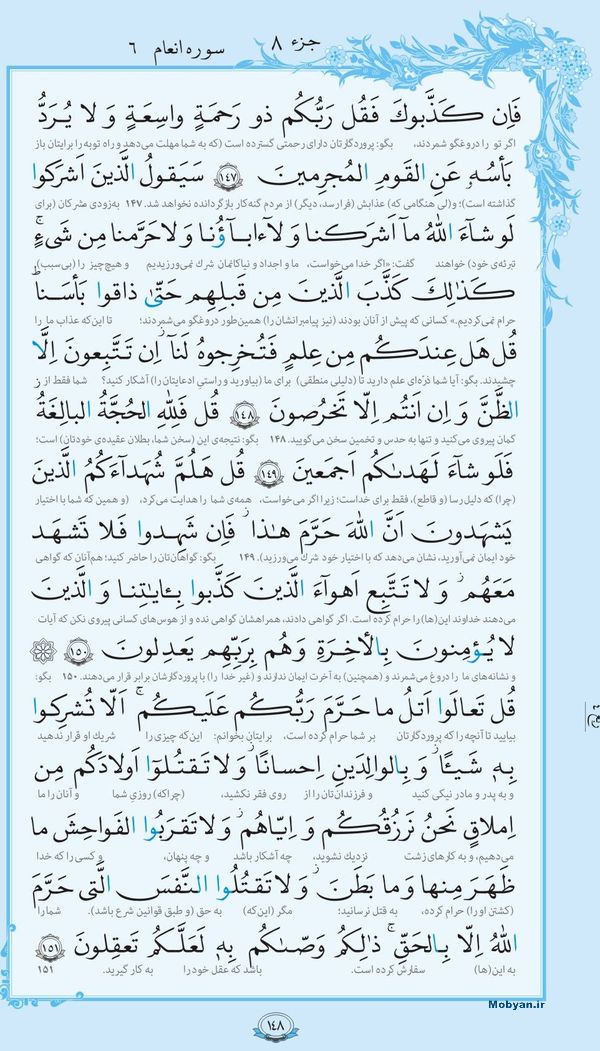 جزء ۸
سوره انعام ۶
فَاِن كَذَّبوكَ فَقُل رَبُّكُم ذو رَحمَةٍ واسِعَةٍ وَ لا يُرَدُّ
اگر تو را دروغگو شمردند، بگو: پروردگارتان دارای رحمتی گسترده است (که به شما مهلت می‌دهد و راه توبه را برایتان باز
بَأسُهٗ عَنِ القَومِ المُجرِمينَ ﴿۱۴۷﴾ سَيَقولُ الَّذينَ اَشرَكوا
گذاشته است)؛ و (لی هنگامی که) عذابش (فرا رسد، دیگر) از مردم گنه‌کار بازگردانده نخواهد شد. ۱۴۷ به‌زودی مشرکان (برای
لَو شاءَ اللهُ ما اَشرَكنا وَ لا ءابآؤُنا وَ لا حَرَّمنا مِن شَیءٍ
تبرئه‌ی خود) خواهند گفت: «اگر خدا می‌خواست، ما و اجداد و نیاکانمان شرک نمی‌ورزیدیم و هیچ‌چیز را (بی‌سبب)
كَذٰلِكَ كَذَّبَ الَّذينَ مِن قَبلِهِم حَتّىٰ ذاقوا بَأسَنا
حرام نمی‌کردیم.» کسانی که پیش از آنان بودند (نیز پیامبرانشان را) همین‌طور دروغگو می‌شمردند؛ تا این‌که عذاب ما را
قُل هَل عِندَكُم مِن عِلمٍ فَتُخرِجوهُ لَنا اِن تَتَّبِعونَ اِلَّا
چشیدند. بگو: آیا شما ذرّه‌ای علم دارید تا (دلیلی منطقی) برای ما (بیاورید و راستیِ ادعایتان را) آشکار کنید؟ شما فقط از
الظَّنَّ وَ اِن اَنتُم اِلّا تَخرُصونَ ﴿۱۴۸﴾ قُل فَلِلّٰهِ الحُجَّةُ البالِغَةُ
گمان پیروی می‌کنید و تنها به حدس و تخمین سخن می‌گویید. ۱۴۸ بگو: نتیجه‌ی این (سخن شما، بطلان عقیده‌ی خودتان) است؛
فَلَو شاءَ لَهَدىٰكُم اَجمَعينَ ﴿۱۴۹﴾ قُل هَلُمَّ شُهَداءَكُمُ الَّذينَ
(چرا) که دلیل رسا (و قاطع)، فقط برای خداست؛ زیرا اگر می‌خواست، همه‌ی شما را هدایت می‌کرد، (و همین که شما با اختیار
يَشهَدونَ اَنَّ اللهَ حَرَّمَ هٰذا فَاِن شَهِدوا فَلا تَشهَد
خود ایمان نمی‌آورید، نشان می‌دهد که با اختیار خود شرک می‌ورزید). ۱۴۹ بگو: گواهانتان را حاضر کنید؛ هم‌آنان که گواهی
مَعَهُم وَ لا تَتَّبِع اَهواءَ الَّذينَ كَذَّبوا بِـٔایٰتِنا وَ الَّذينَ
می‌دهند خداوند این(ها) را حرام کرده است. اگر گواهی دادند، همراهشان گواهی نده و از هوس‌های کسانی پیروی نکن که آیات
لا يُؤمِنونَ بِالـٔاخِرَةِ وَ هُم بِرَبِّهِم يَعدِلونَ ﴿۱۵۰﴾
و نشانه‌های ما را دروغ می‌شمرند و (همچنین) به آخرت ایمان ندارند و (غیر خدا را) با پروردگارشان برابر قرار می‌دهند. ۱۵۰ بگو:
قُل تَعالَوا اَتلُ ما حَرَّمَ رَبُّكُم عَلَيكُم اَلّا تُشرِكوا
بیایید تا آنچه را که پروردگارتان بر شما حرام کرده است، برایتان بخوانم: این‌که چیزی را شریک او قرار ندهید
بِهٖ شَيـًٔا وَ بِالوالِدَينِ اِحسانًا وَ لا تَقتُلوا اَولادَكُم مِن
و به پدر و مادر نیکی کنید و فرزندان‌تان را از روی فقر نکشید، (چراکه) روزیِ شما و آنان را ما
اِملاقٍ نَحنُ نَرزُقُكُم وَ اِيّاهُم وَ لا تَقرَبُوا الفَواحِشَ ما
می‌دهیم، و به کارهای زشت نزدیک نشوید، چه آشکار باشد و چه پنهان، و کسی را که خدا
ظَهَرَ مِنها وَ ما بَطَنَ وَ لا تَقتُلُوا النَّفسَ الَّتى حَرَّمَ
(کشتن او را) حرام کرده، به قتل نرسانید؛ مگر (این‌که) به حق (و طبق قوانین شرع باشد). شما را
اللهُ اِلّا بِالحَقِّ ذٰلِكُم وَصّىٰكُم بِهٖ لَعَلَّكُم تَعقِلونَ ﴿۱۵۱﴾
به این(ها) سفارش کرده است. باشد که عقل خود را به کار گیرید. ۱۵۱
Mobyan.ir
۱۴۸